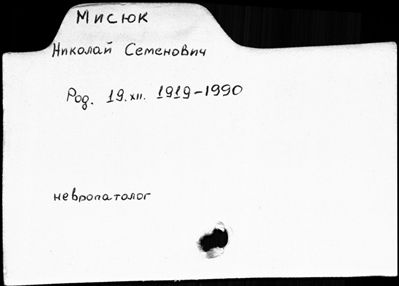 Мисюк
Николай Семенович
Род. 19.XII. 1919-1990
невропатолог